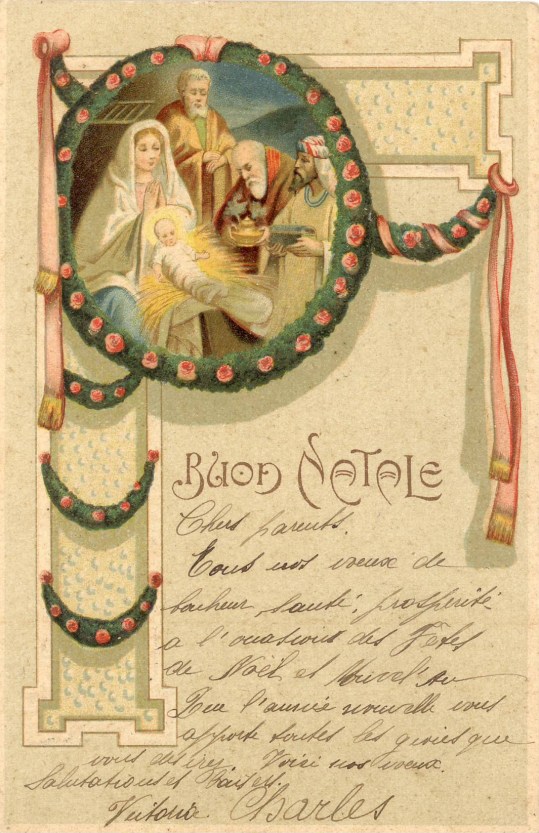 BUON NATALE
Chers parents.
Tous nos voeux de
bonheur, santé, prospérité
a l'ocasions des Fêtes
de Noël et Nouvel'An
Que l'année nouvelle vous
apporte toutes les joies que
vous desirez. Voici nos voeux.
Salutations et
Victoria Charles